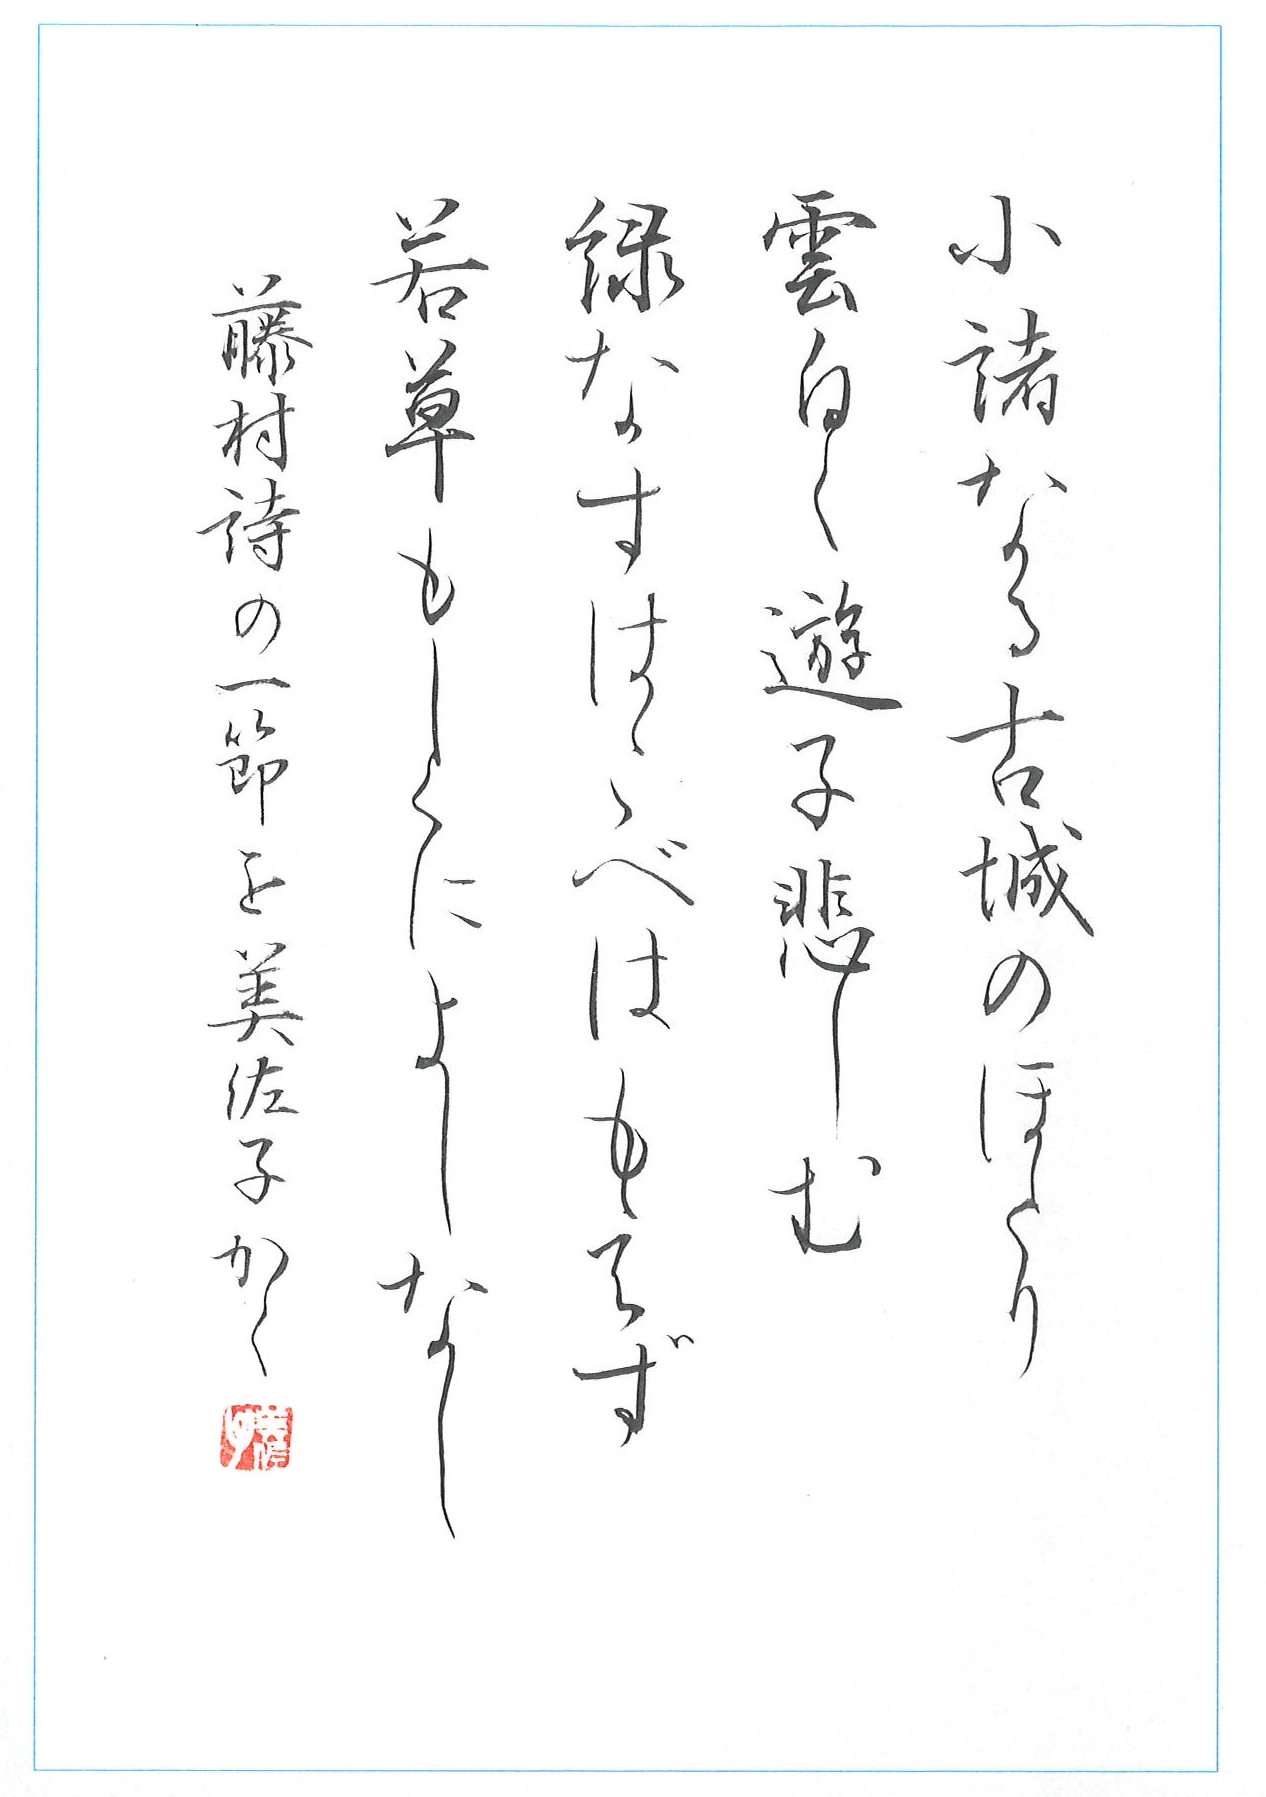 小諸なる古城のほとり
雲白く遊子悲しむ
緑なすはこべはもえず
若草もしくによしなし
藤村詩の一節を美佐子かく